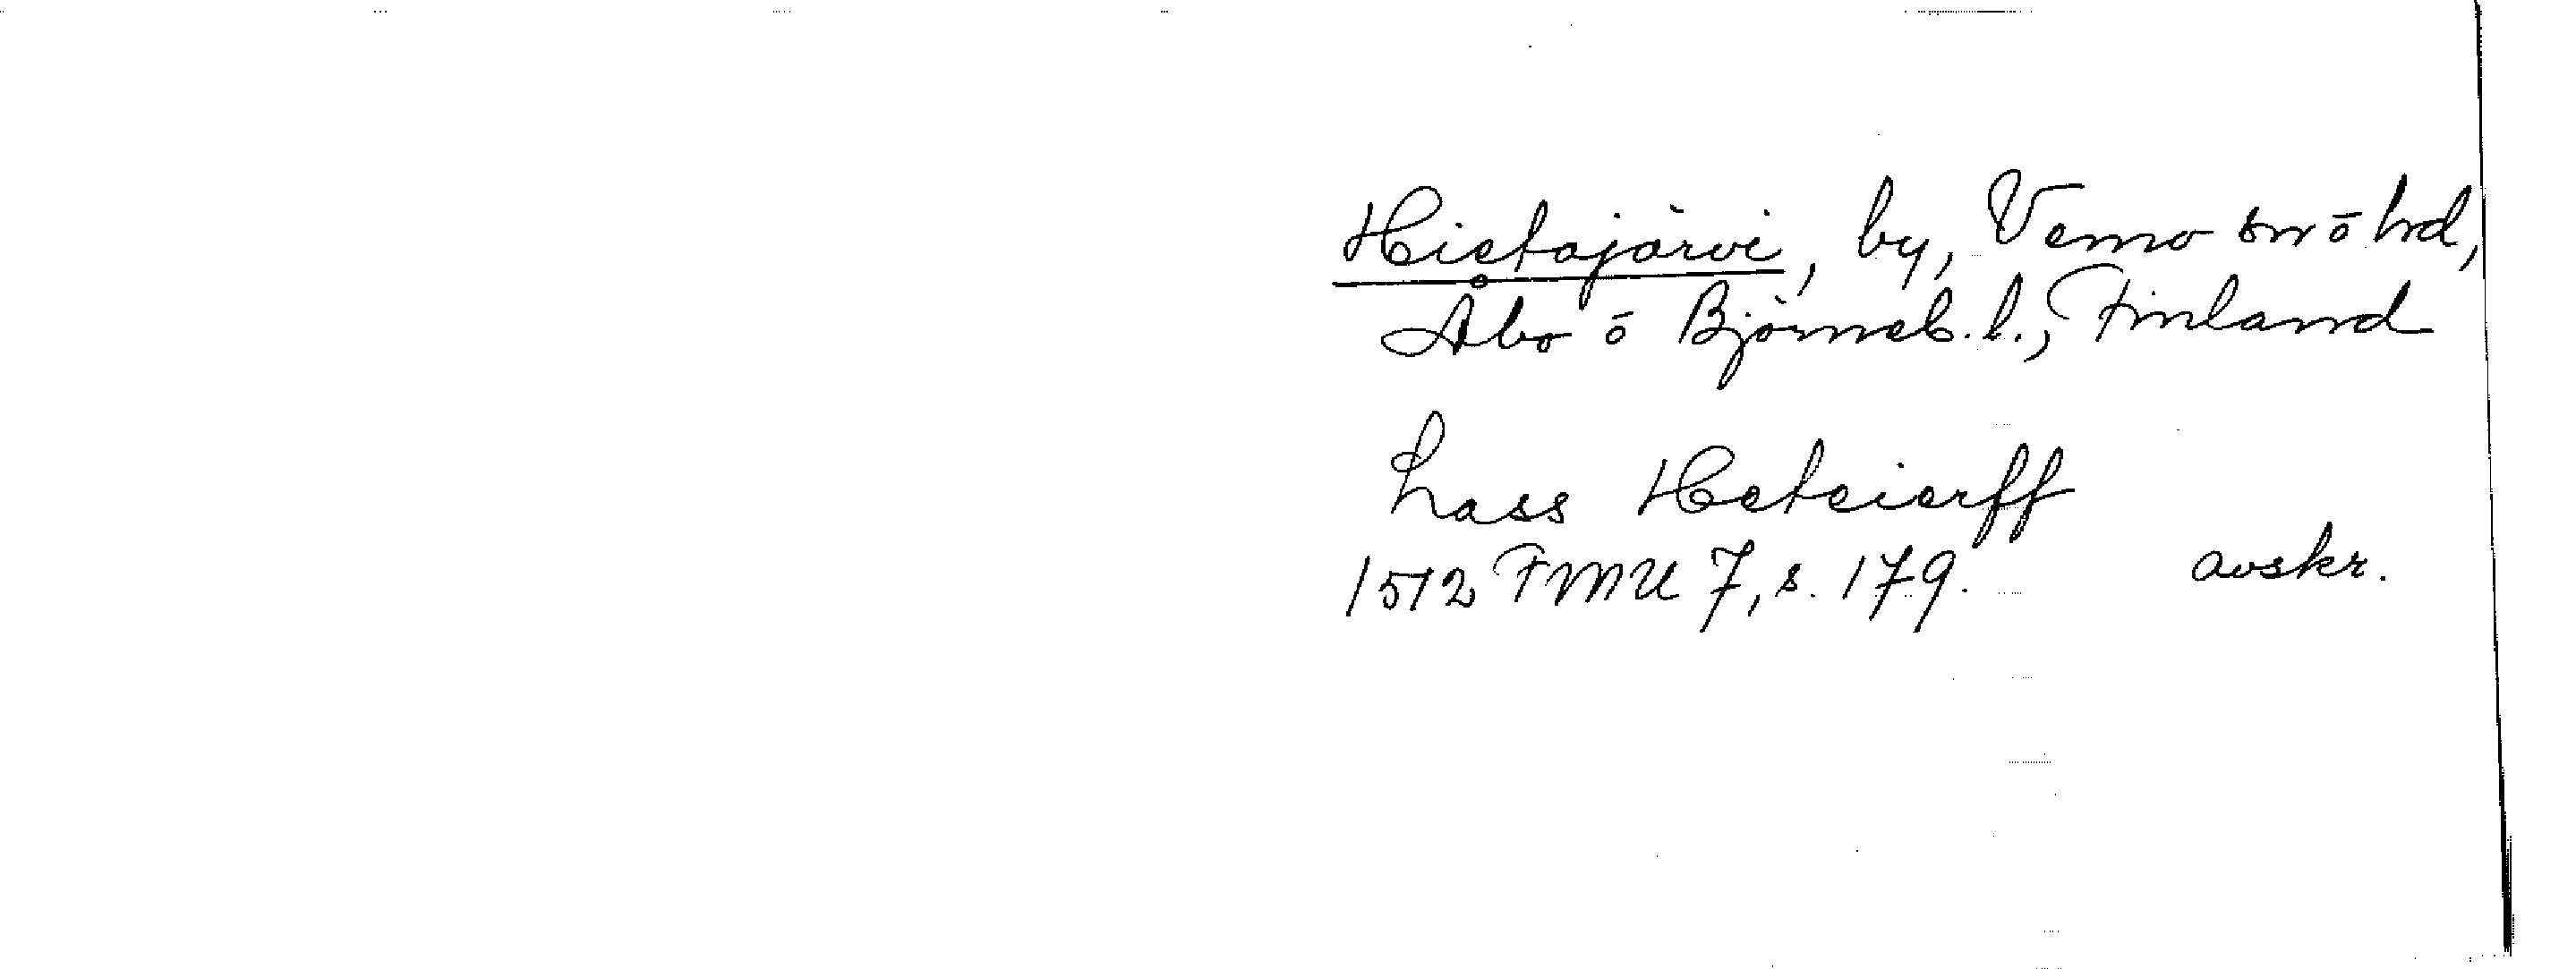 Hietajärvi, by, Vemo sn o hd,
Åbo o Björneb. l., Finland
Lass Heteierff
1512 FMU 7, s. 179. avskr.